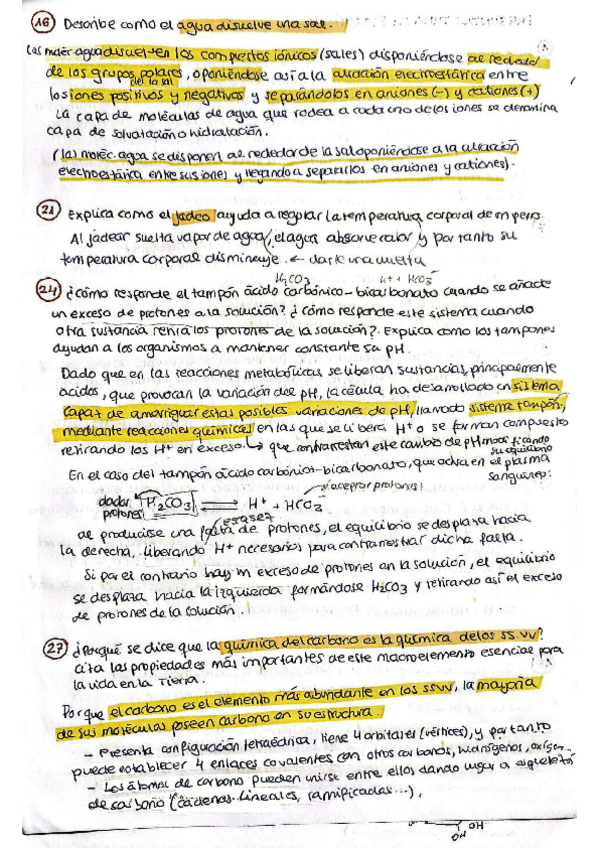 16 Describe como el agua disuelve una sal.
Las moléc. agua disuelven los compuestos iónicos (sales) disponiéndose alrededor
de los grupos polares de la sal, oponiéndose así a la atracción electrostática entre
los iones positivos y negativos y separándolos en aniones (-) y cationes (+)
La capa de moléculas de agua que rodea a cada uno de los iones se denomina
capa de solvatación o hidratación.
(las moléc. agua se disponen alrededor de la sal oponiéndose a la atracción
electrostática entre sus iones y llegando a separarlos en aniones y cationes).
21 Explica como el jadeo ayuda a regular la temperatura corporal de un perro.
Al jadear suelta vapor de agua, el agua absorve calor y por tanto su
temperatura corporal disminuye. ← darle una vuelta
H2CO3 H+ + HCO3-
24 ¿Cómo responde el tampón ácido carbónico-bicarbonato cuando se añade
un exceso de protones a la solución? ¿cómo responde este sistema cuando
otra sustancia retira los protones de la solución?. Explica como los tampones
ayudan a los organismos a mantener constante su pH.
Dado que en las reacciones metabólicas se liberan sustancias, principalmente
ácidos, que provocan la variación del pH, la célula ha desarrollado un sistema
capaz de amortiguar estas posibles variaciones de pH, llamado sistema tampón,
mediante reacciones químicas en las que se libera H+ o se forman compuestos
retirando los H+ en exceso. ↳ que contrarrestan este cambio de pH modificando
su equilibrio
En el caso del tampón ácido carbónico-bicarbonato, que actúa en el plasma
sanguíneo:
aceptor protones!
dador
protones H2CO3 ⇌ H+ + HCO3-
al producirse una falta de protones, el equilibrio se desplaza hacia
escasez
la derecha, liberando H+ necesarios para contrarrestar dicha falta.
Si por el contrario hay un exceso de protones en la solución, el equilibrio
se desplaza hacia la izquierda formándose H2CO3 y retirando así el exceso
de protones de la solución.
27 ¿Porqué se dice que la química del carbono es la química de los ss.vv?
Cita las propiedades más importantes de este macroelemento esencial para
la vida en la Tierra.
Porque el carbono es el elemento más abundante en los ssvv, la mayoría
de sus moléculas poseen carbono en su estructura.
- Presenta configuración tetraédrica, tiene 4 orbitales (vértices), y por tanto
puede establecer 4 enlaces covalentes con otros carbonos, hidrógenos, oxígen...
- Los átomos de carbono pueden unirse entre ellos dando lugar a esqueletos
de carbono (cadenas lineales, ramificadas...),
OH
OH